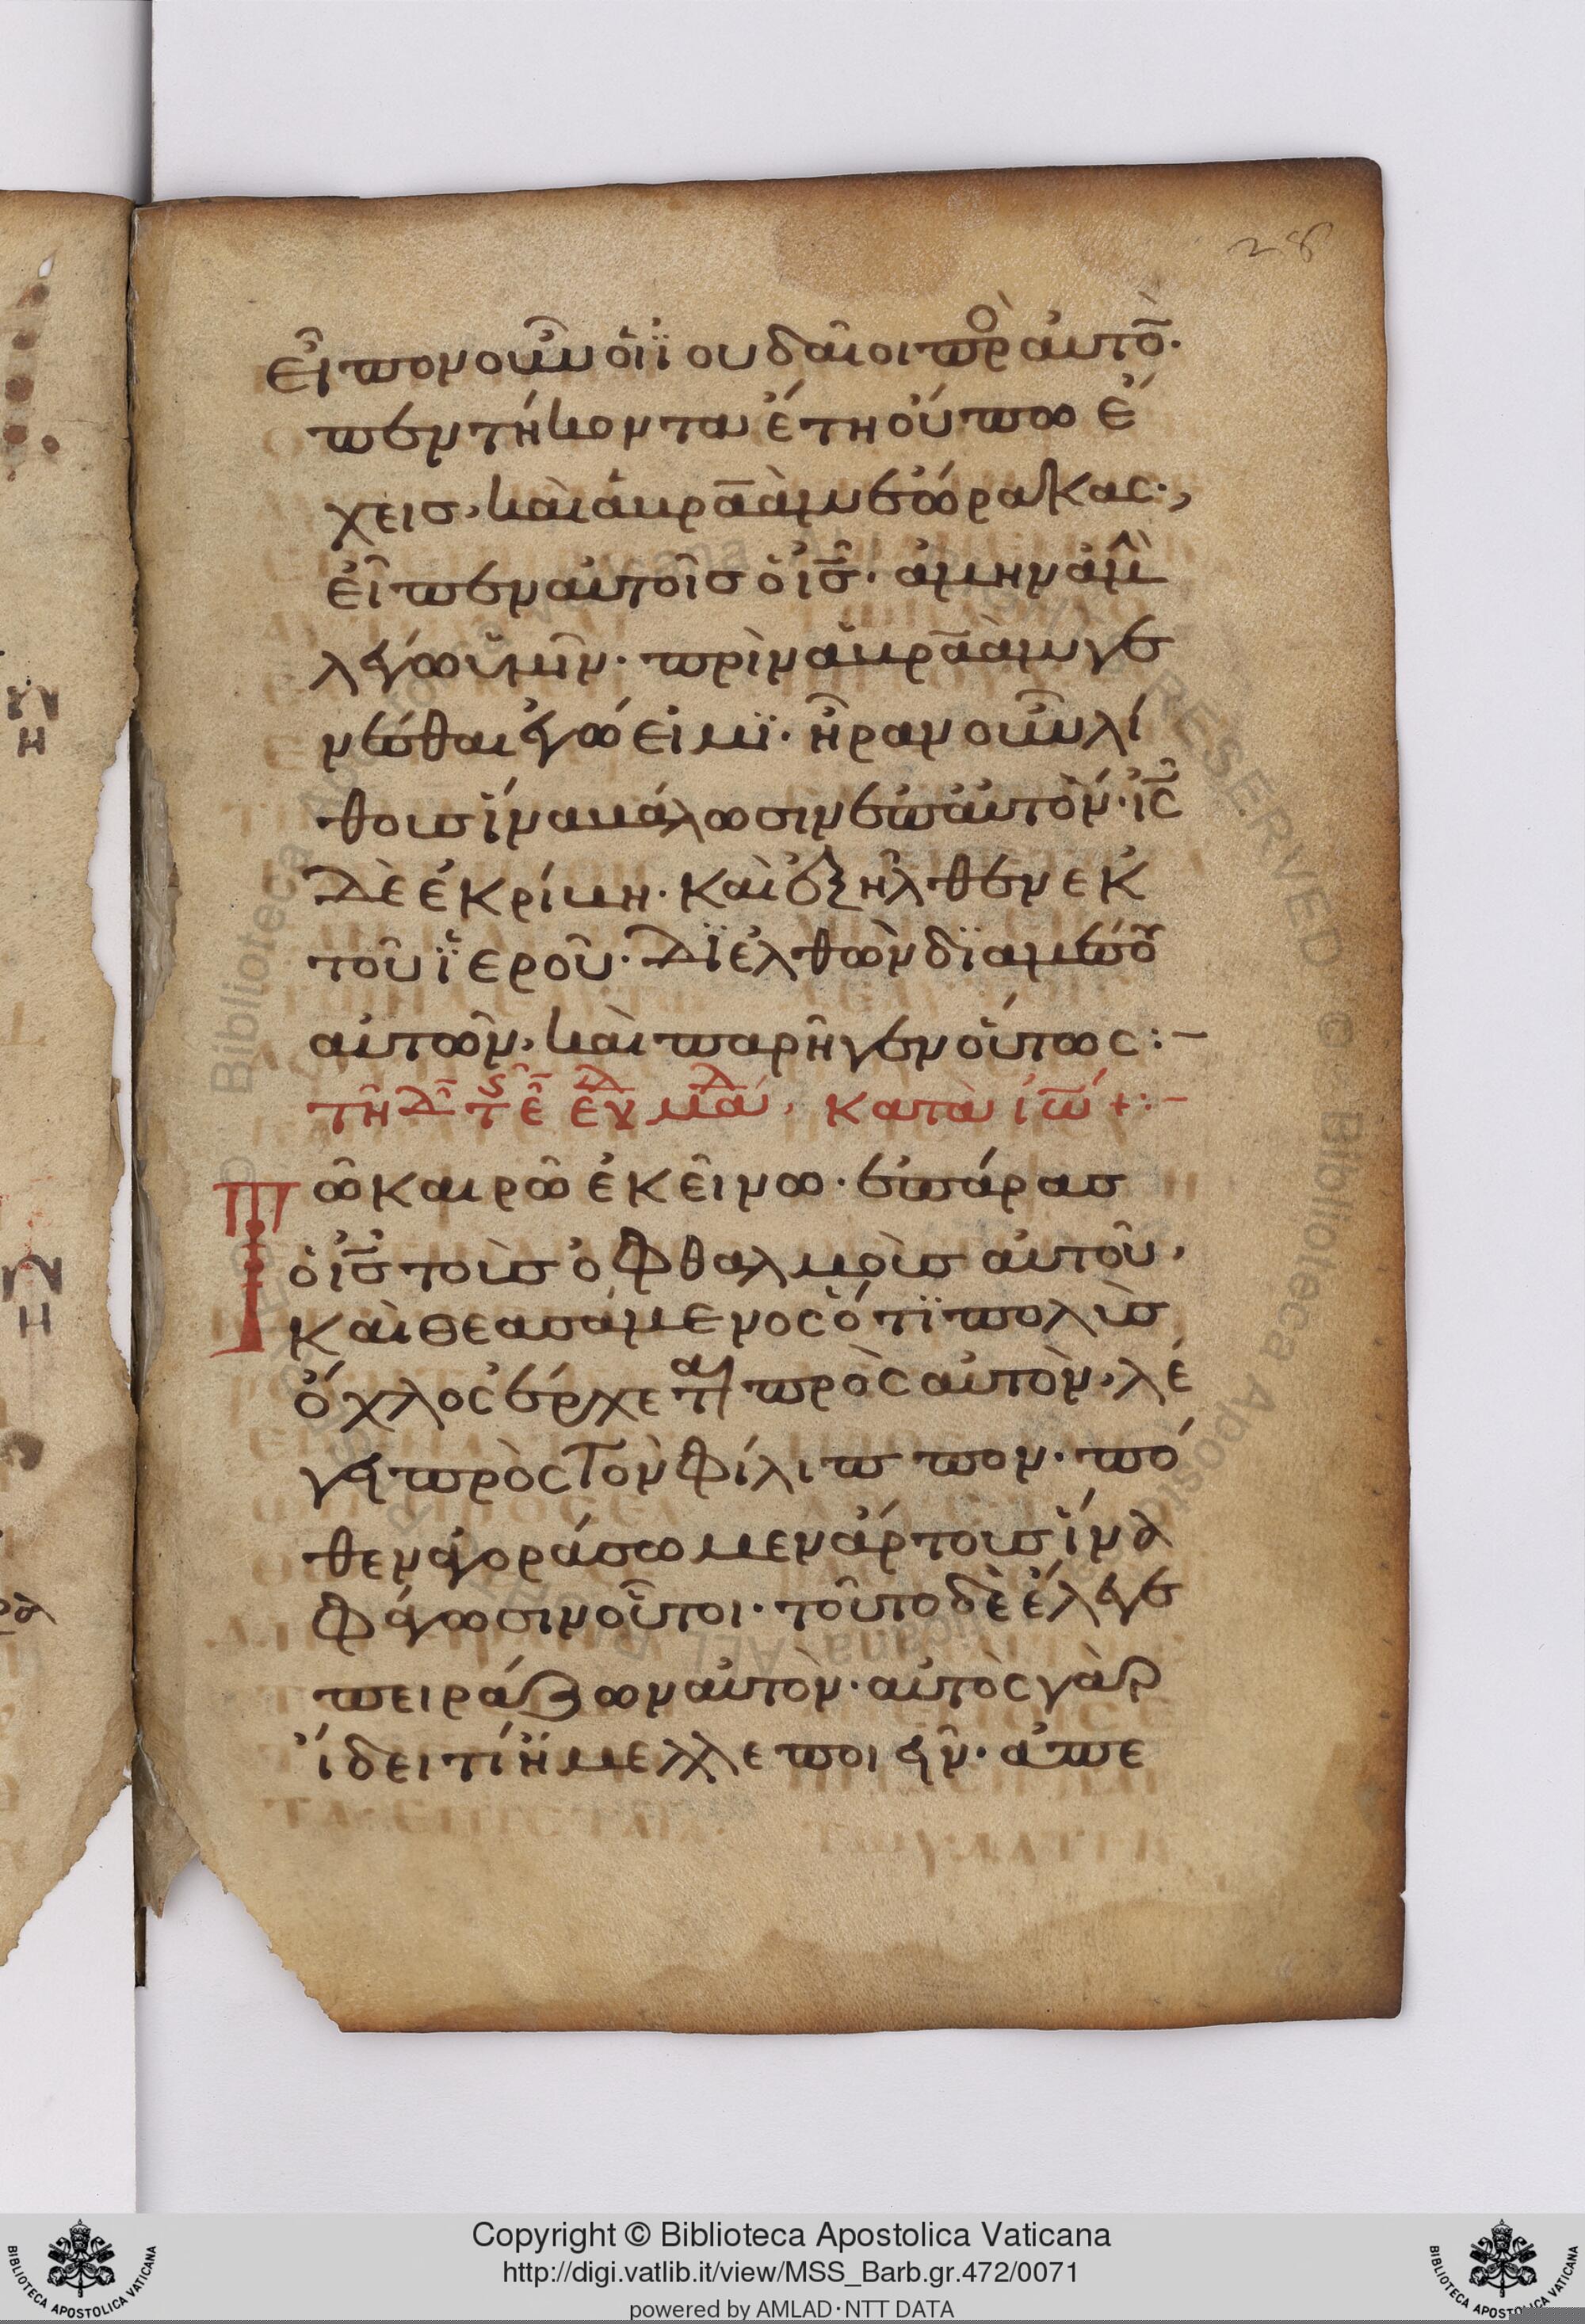 28
εἶπον οὖν οἱ ϊουδαῖοι πρὸ αὐτό̄·
πεντήκοντα ἔτη οὔπω ἔ
χεις, καὶ ἀβρα̅ὰμ ἑώρακας·,
εἶπεν αὐτοῖς ὁ ι̅ς̅· ἀμὴν ἀμὴ
λέγω ὑμῖν· πρὶν ἀβρα̅ὰμ γε
νέσθαι ἐγώ εἰμϊ· ἦραν οὖν λί
θους ἵνα βάλωσιν ἐπ αὐτὸν· ι̅ς̅
δὲ ἐκρίβη· καὶ ἐξῆλθεν ἐκ
τοῦ ϊεροῦ· Δϊελθὼν δϊαμέσου
αὐτῶν, καὶ παρῆγεν οὕτως:–
τῆ Δ̅ τ ε̅ ευ μα, κατὰ ιω̅ +:–
Τῶ καιρῶ ἐκεῖνω· ἐπάρας
ὁ ι̅ς̅ τοὺς ὀφθαλμοὺς αὐτοῦ,
καὶ θεασάμενος ὅτϊ πολὺς
ὄχλος ἔρχεται πρὸς αὐτὸν, λέ
γει πρὸς Τὸν φίλιππον· πό
θεν ἀγοράσωμεν ἄρτους ἵνα
φάγωσιν οὗτοι· τοῦτο δὲ ἔλεγε
πειράζων αὐτὸν· αὐτὸς γὰρ
ἴδει τί ἤμελλε ποιεῖν· ἀπε
Copyright © Biblioteca Apostolica Vaticana
http://digi.vatlib.it/view/MSS_Barb.gr.472/0071
powered by AMLAD·NTT DATA
BIBLIOTECA APOSTOLICA VATICANA
BIBLIOTECA APOSTOLICA VATICANA